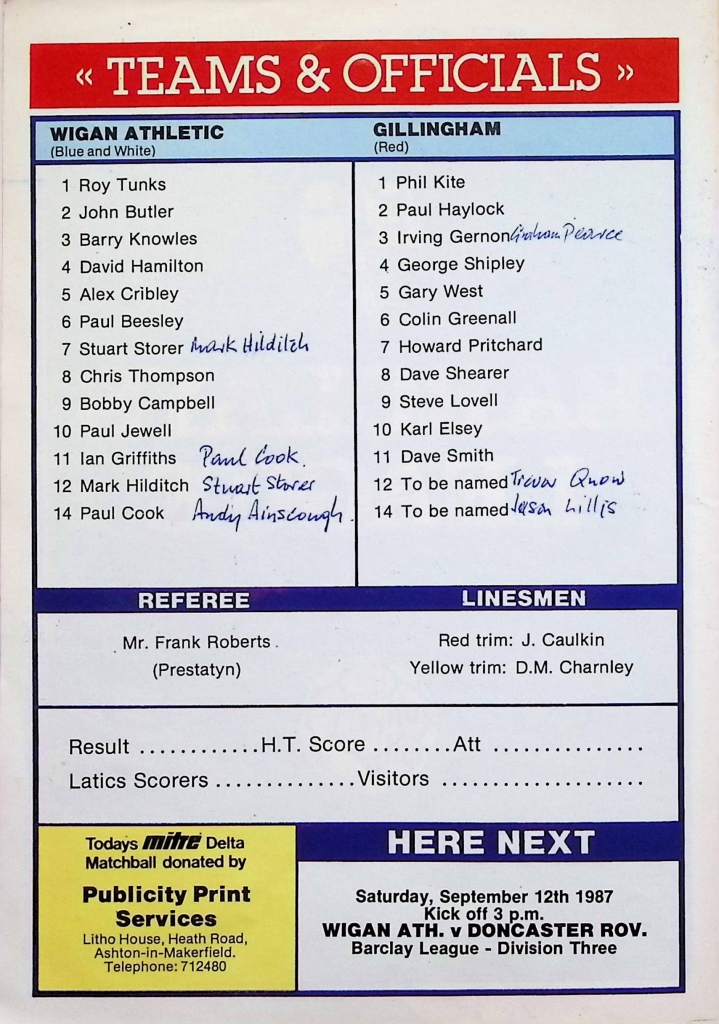 « TEAMS & OFFICIALS »
WIGAN ATHLETIC
(Blue and White)
1 Roy Tunks
2 John Butler
3 Barry Knowles
4 David Hamilton
5 Alex Cribley
6 Paul Beesley
7 Stuart Storer Mark Hilditch
8 Chris Thompson
9 Bobby Campbell
10 Paul Jewell
11 Ian Griffiths Paul Cook.
12 Mark Hilditch Stuart Storer
14 Paul Cook Andy Ainscough.
GILLINGHAM
(Red)
1 Phil Kite
2 Paul Haylock
3 Irving Gernon Graham Pearce
4 George Shipley
5 Gary West
6 Colin Greenall
7 Howard Pritchard
8 Dave Shearer
9 Steve Lovell
10 Karl Elsey
11 Dave Smith
12 To be named Trevor Quow
14 To be named Jason Lillis
REFEREE
Mr. Frank Roberts
(Prestatyn)
LINESMEN
Red trim: J. Caulkin
Yellow trim: D.M. Charnley
Result ............H.T. Score ........Att ...............
Latics Scorers ..............Visitors ....................
Todays mitre Delta
Matchball donated by
Publicity Print
Services
Litho House, Heath Road,
Ashton-in-Makerfield.
Telephone: 712480
HERE NEXT
Saturday, September 12th 1987
Kick off 3 p.m.
WIGAN ATH. v DONCASTER ROV.
Barclay League - Division Three